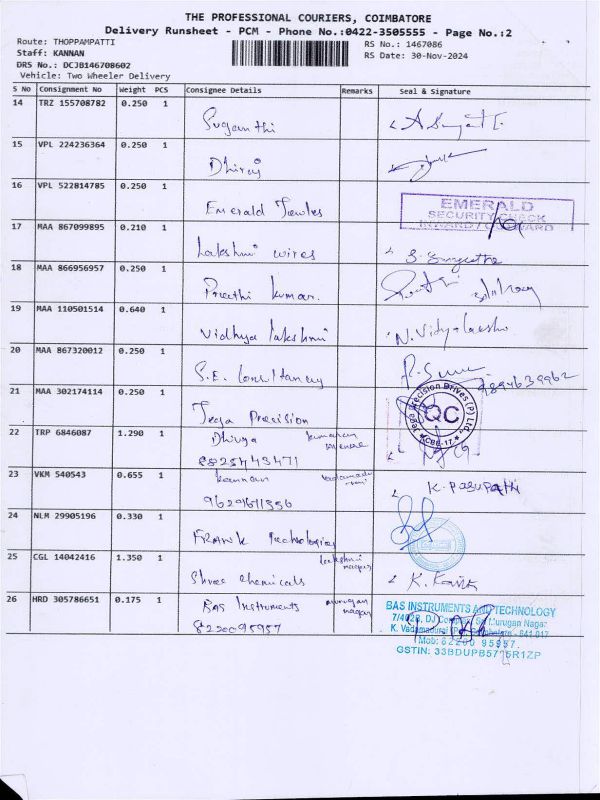 THE PROFESSIONAL COURIERS, COIMBATORE
Delivery Runsheet - PCM - Phone No.:0422-3505555 - Page No.:2
Route: THOPPAMPATTI
RS No.: 1467086
Staff: KANNAN
RS Date: 30-Nov-2024
DRS No.: DCJB146708602
Vehicle: Two Wheeler Delivery
S No Consignment No Weight PCS Consignee Details Remarks Seal & Signature
14 TRZ 155708782 0.250 1
Suganthi
15 VPL 224236364 0.250 1
Dhiraj
16 VPL 522814785 0.250 1
Emerald
EMERALD
SECURITY CHECK
INWARD / OUTWARD
17 MAA 867099895 0.210 1
Lakshmi wires
18 MAA 866956957 0.250 1
Preethi kumar.
19 MAA 110501514 0.640 1
Vidhya lakshmi
20 MAA 867320012 0.250 1
S.E. Consultancy
9894639962
21 MAA 302174114 0.250 1
Jega Precision
Jega Precision Drives (P) Ltd
QC
CBE-17
22 TRP 6846087 1.290 1
Dhivya
8825743471
23 VKM 540543 0.655 1
kannan
K. Pasupathi
24 NLM 29905196 0.330 1
FRANK Technologies
25 CGL 14042416 1.350 1
Lakshmi nagar
Shree Chemicals
26 HRD 305786651 0.175 1
BAS Instruments
murugan nagar
8220095957
BAS INSTRUMENTS AND TECHNOLOGY
K. Vadamadurai
Mob: 82200 95957